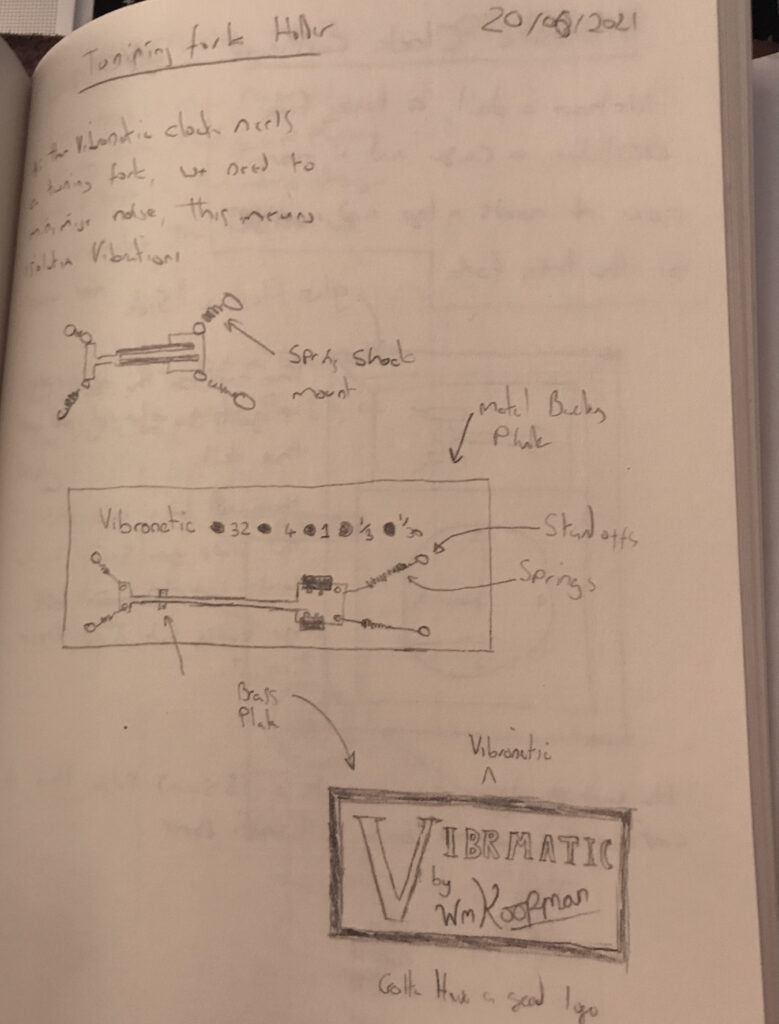 Tunning fork Holder
20/08/2021
the Vibronatic clock needs
a tuning fork, we need to
minimise noise, this means
isolation Vibrations
Spring shock
mount
Metal Backing
Plate
Vibronetic 32 4 1 1/3 1/30
Stand offs
Springs
Brass
Plate
Vibronetic
^
VIBRMATIC
by
Wm Koopman
Gotta Have a good logo